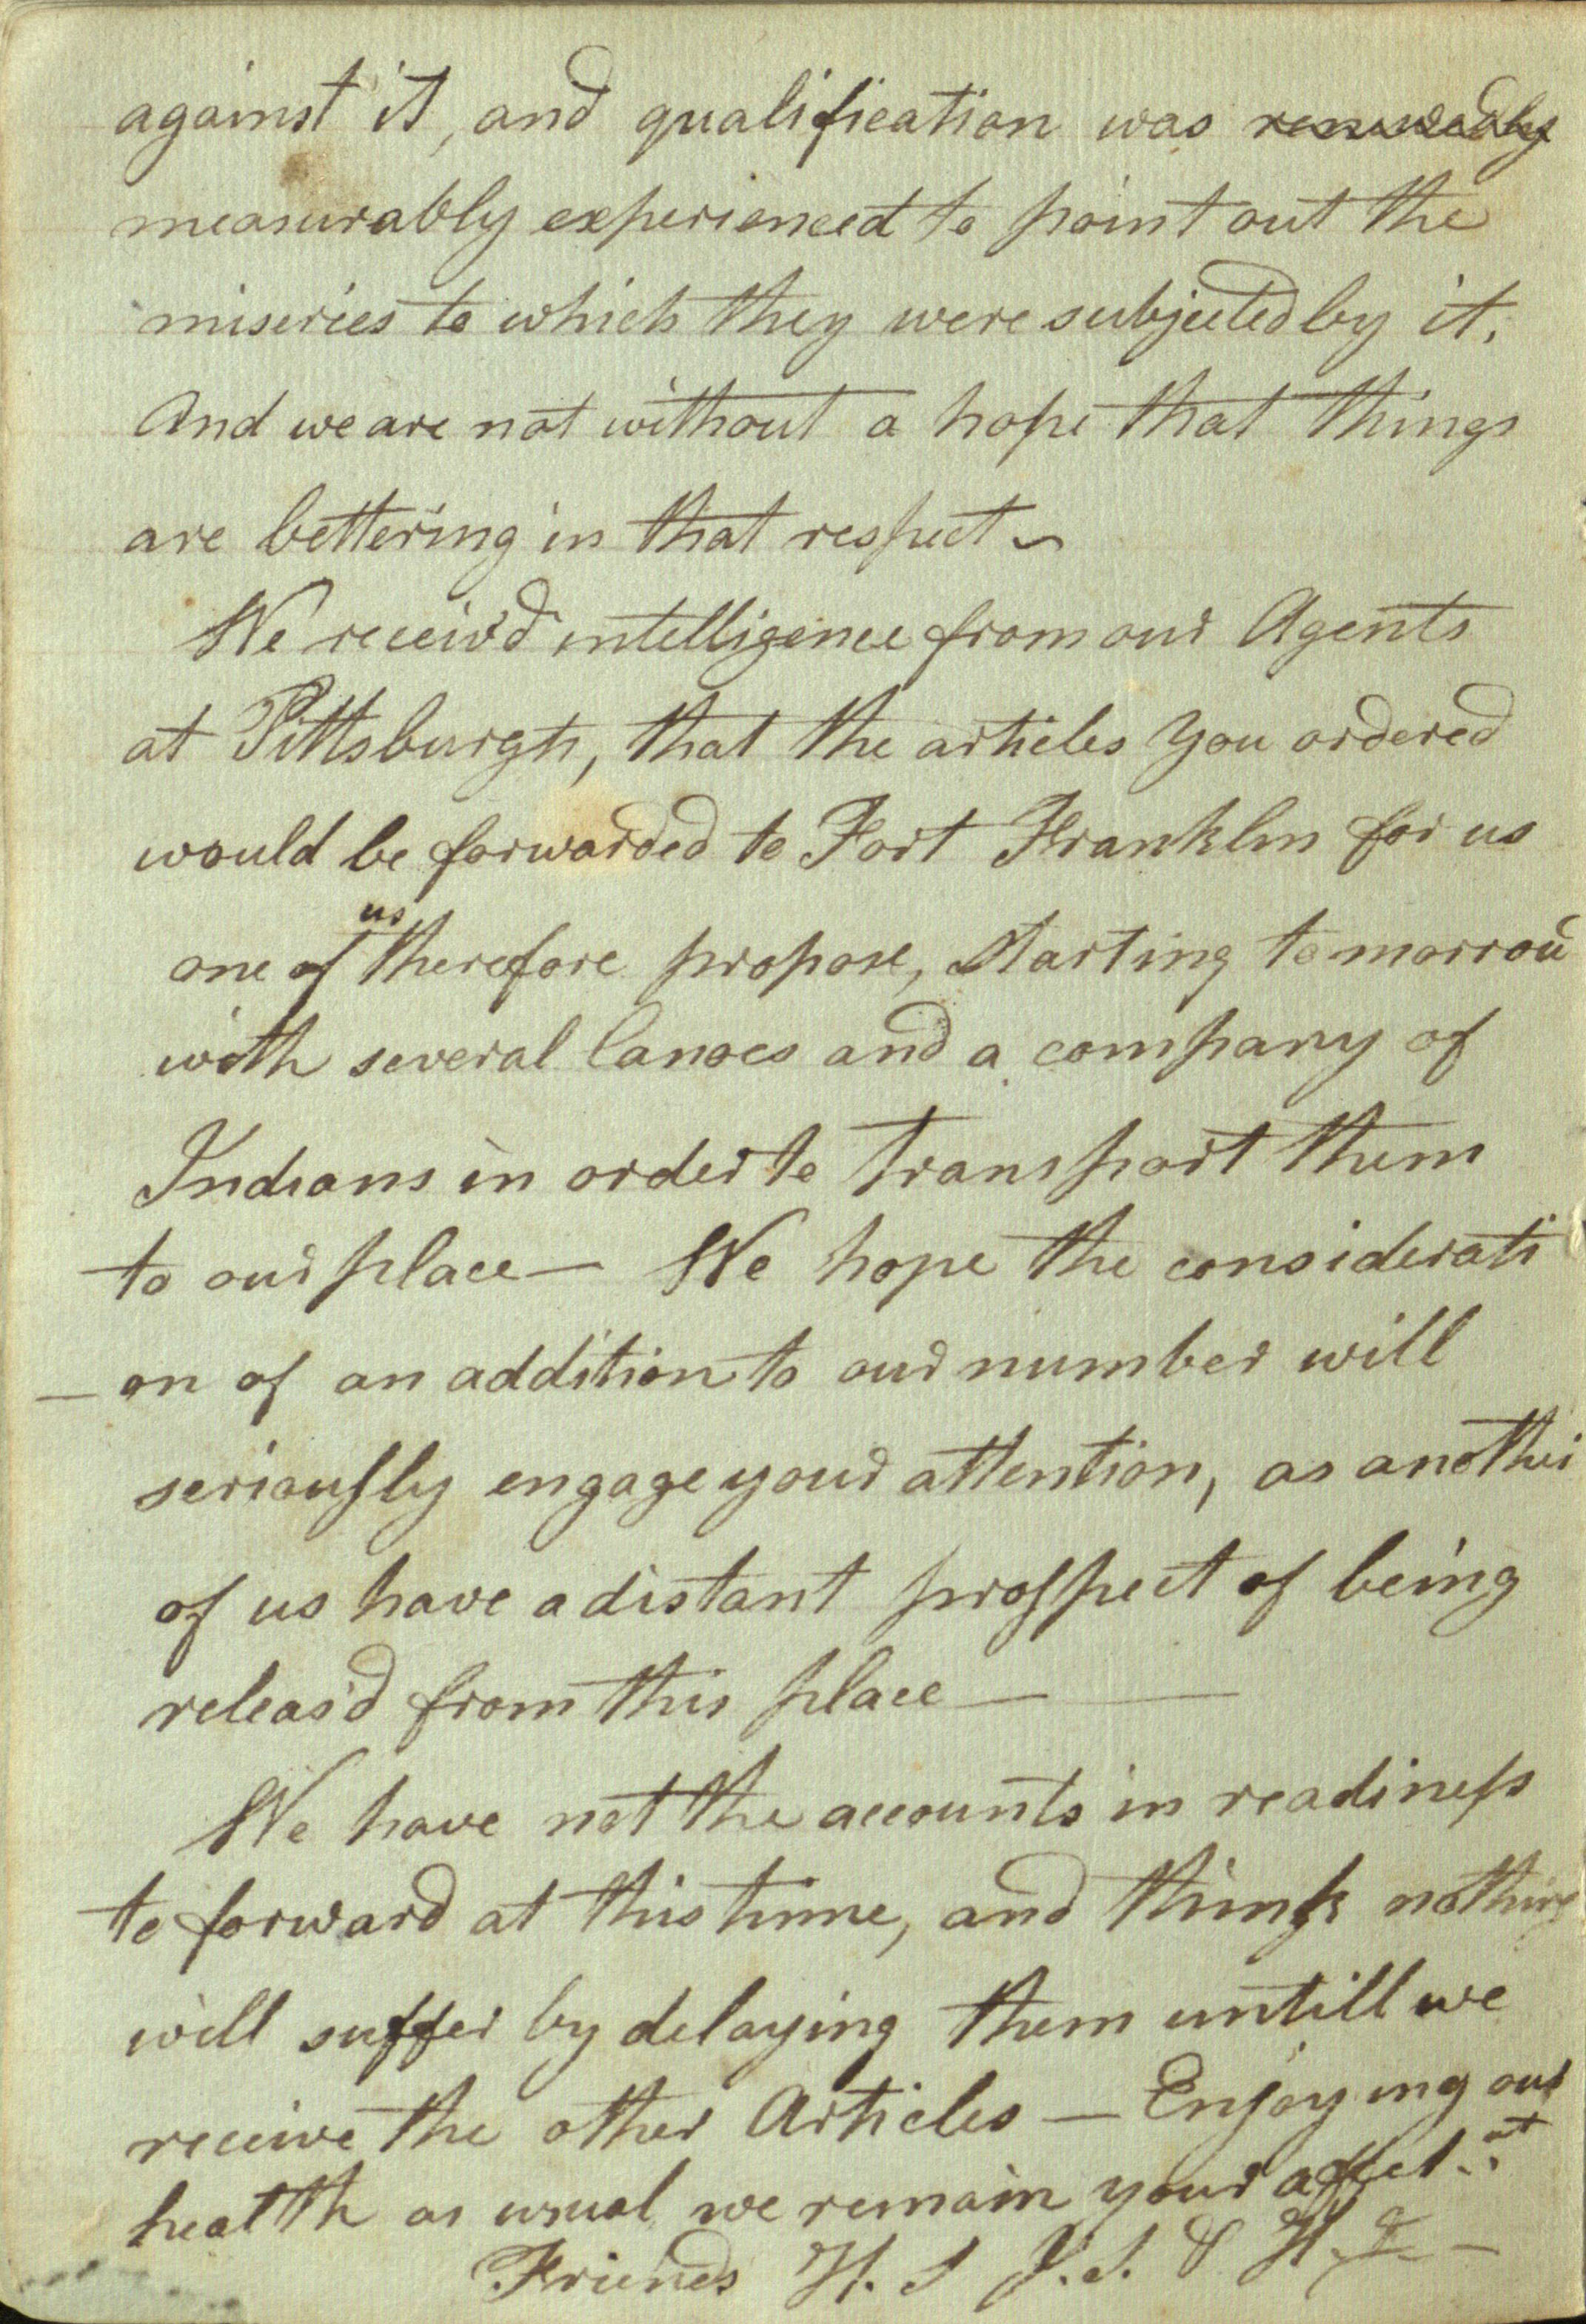 against it, and qualification was renewedly
measurably experienced to point out the
miseries to which they were subjected by it.
And we are not without a hope that things
are bettering in that respect ~
We receiv'd intelligence from our Agents
at Pittsburgh, that the articles you ordered
would be forwarded to Fort Franklin for us
us
one of therefore propose, starting tomorrow
with several Canoes and a company of
Indians in order to transport them
to our place — We hope the considerati
— on of an addition to our number will
seriously engage your attention, as another
of us have a distant prospect of being
releas'd from this place — —
We have not the accounts in readiness
to forward at this time, and think nothing
will suffer by delaying them untill we
receive the other Articles — Enjoying our
health as usual we remain your affect.
Friends H. S J. S. & H